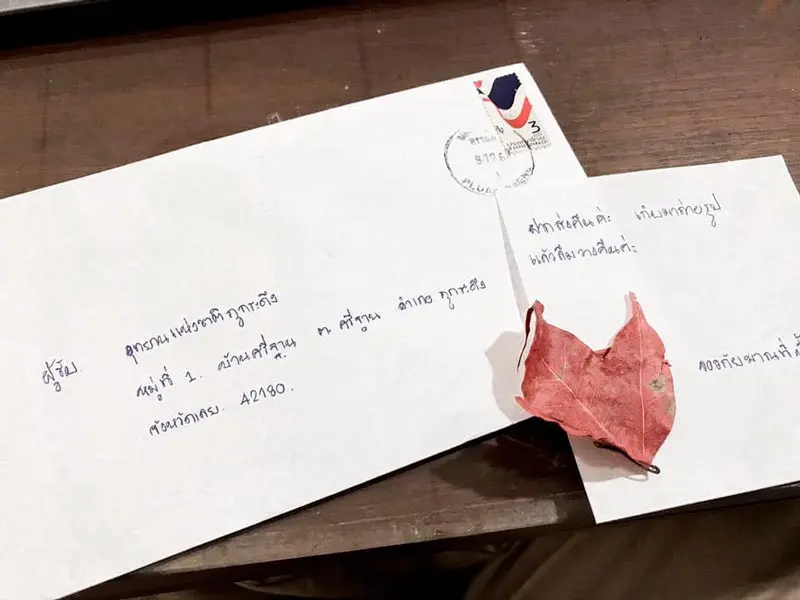 ผู้รับ. อุทยานแห่งชาติภูกระดึง
หมู่ที่ 1. บ้านศรีฐาน ต.ศรีฐาน อำเภอ ภูกระดึง
จังหวัดเลย. 42180.
3
ฝากส่งคืนค่ะ เก็บมาถ่ายรูป
แล้วลืมวางคืนค่ะ
ขออภัยมาณที่